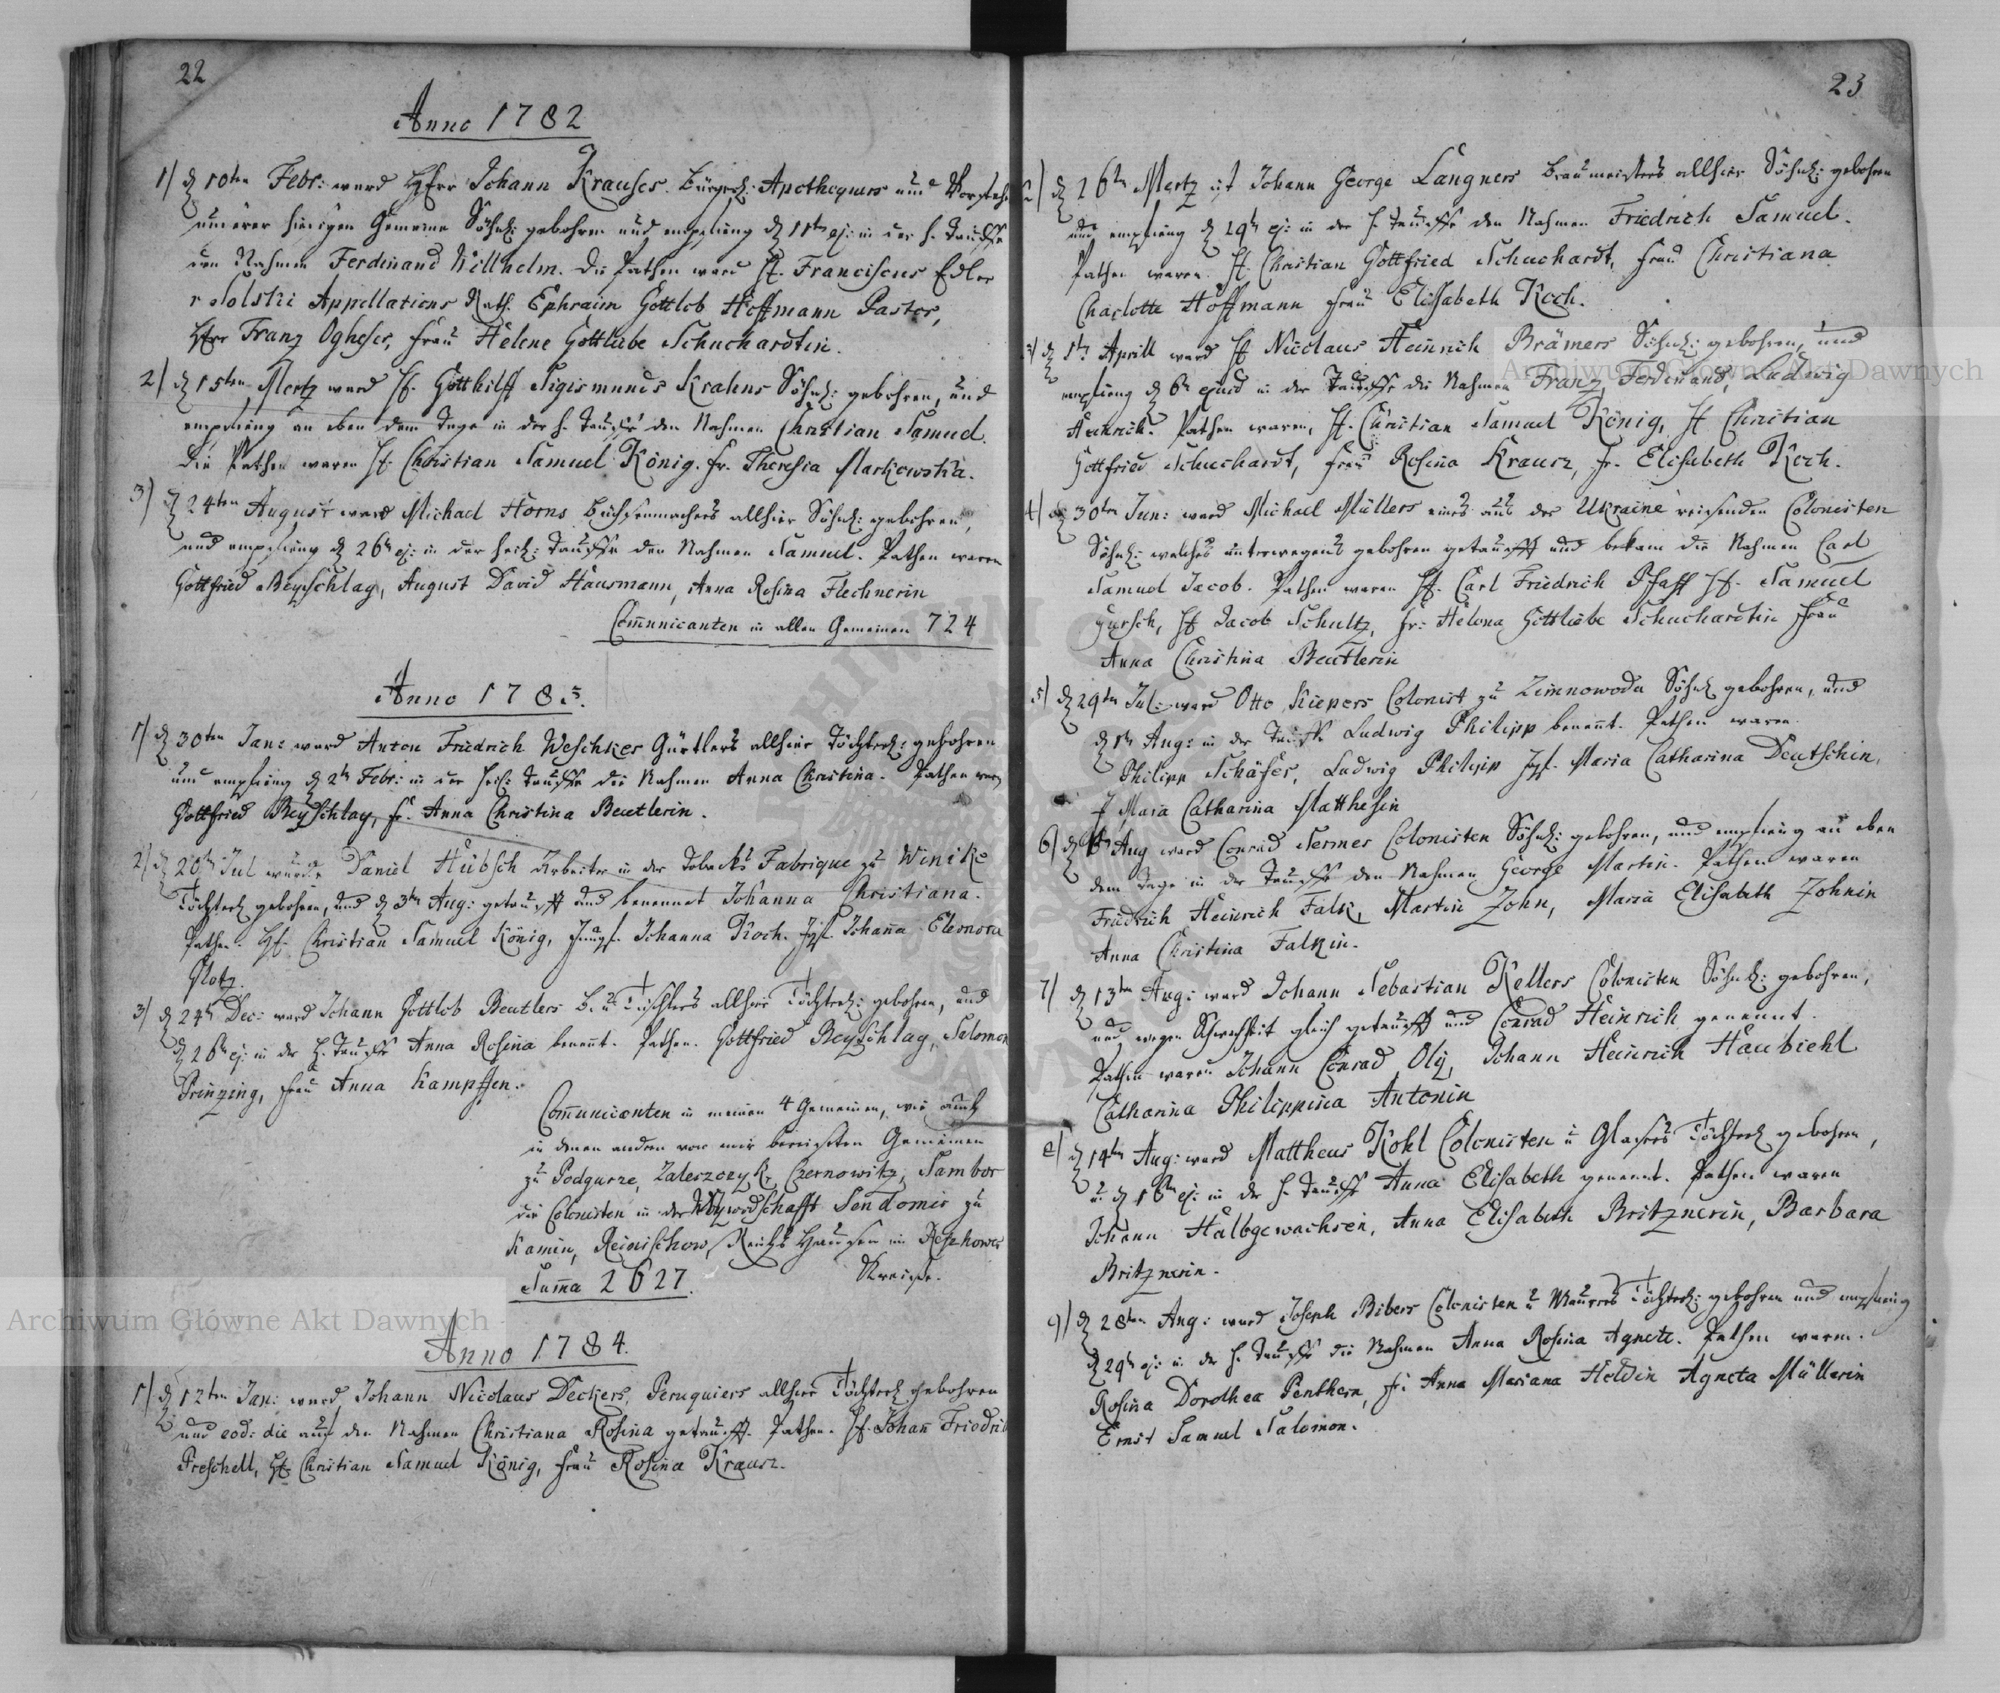 22
Anno 1782
1) d 10ten Febr: ward HErr Johann Krauses. Bürgerl: Apothequers und Vorsteh
unserer hiesigen Gemeine Söhnl: gebohren und empfieng d 11ten ej: in der h. Tauffe
den Nahmen Ferdinand Willhelm. Die Pathen ward H. Franciscus Edler
v Solski Appellations Rath. Ephraim Gottlob Hoffmann Pastor,
Herr Franz Ogheser, Frau Helene Gottliebe Schuchardtin.
2) d 15ten Mertz ward H. Gotthilff Sigismunds Krahns Söhnl: gebohren, und
empfieng an eben dem Tage in der h. Tauffe den Nahmen Christian Samuel.
Die Pathen waren H. Christian Samuel König. Fr. Theresia Markowska.
3) d 24ten August ward Michael Horns Büchsenmachers allhier Söhnl: gebohren,
und empfieng d 26 ej: in der heil: Tauffe den Nahmen Samuel. Pathen waren
Gottfried Beyschlag, August David Hausmann, Anna Rosina Flechnerin
Communicanten in allen Gemeinen 724
Anno 1783.
1) d 30ten Jan: ward Anton Friedrich Weschkes Gürtlers allhier Töchterl: gebohren
und empfieng d 2ten Febr: in der heil: Tauffe die Nahmen Anna Christina. Pathen waren
Gottfried Beyschlag, Fr. Anna Christina Beutlerin.
2) d 20ten Jul wurde Daniel Hübsch Arbeiter in der Tobacks Fabrique zu Winike
Töchterl gebohren, und d 3ten Aug: getaufft und benennet Johanna Christiana.
Pathen. H. Christian Samuel König, Jungf. Johanna Koch. Jgf. Johanna Eleonora
Glotz.
3) d 24ten Dec: ward Johann Gottlob Beutlers B. u. Tischlers allhier Töchterl: gebohren, und
d 26 ej: in der H. Tauffe Anna Rosina benennt. Pathen. Gottfried Beyschlag, Salomon
Prinzing, Frau Anna Kampffen.
Communicanten in meinen 4 Gemeinen, wie auch
in denen andern von mir bereisten Gemeinen
zu Podgurze, Zaleszczyk, Czernowitz, Sambor
die Colonisten in der Woywodschafft Sendomir zu
Kamin, Reinischow, Reichshausen im Rzeszower
Summa 2627. Kreise.
Anno 1784.
1) d 12ten Jan: ward Johann Nicolaus Deckers, Peruquiers allhier Töchterl. gebohren
und eod: die auf den Nahmen Christiana Rosina getaufft. Pathen. H. Johann Friedrich
Preschell, H. Christian Samuel König, Frau Rosina Krausz.
23
2) d 26ten Mertz ist Johann George Langners Braumeisters allhier Söhnl: gebohren
und empfieng d 29ten ej: in der h. Tauffe den Nahmen Friedrich Samuel.
Pathen waren. H. Christian Gottfried Schuchardt, Frau Christiana
Charlotte Hoffmann Frau Elisabeth Koch.
3) d 5ten Aprill ward H Nicolaus Heinrich Brämers Söhnl: gebohren, und
empfieng d 6ten ejusd in der Tauffe die Nahmen Franz, Ferdinand, Ludwig
Heinrich. Pathen waren, H. Christian Samuel König, H Christian
Gottfried Schuchardt, Frau Rosina Krausz, Fr. Elisabeth Koch.
4) d 30ten Jun: ward Michael Müllers eines aus der Ukraine reisenden Colonisten
Söhnl: welches unterwegens gebohren getaufft und bekam die Nahmen Carl
Samuel Jacob. Pathen waren H. Carl Friedrich Pfaff H. Samuel
Gursch, H Jacob Schultz, Fr: Helena Gottliebe Schuchardtin Frau
Anna Christina Beutlerin
5) d 29ten Jul: ward Otto Kiepers Colonist zu Zimnowoda Söhnl gebohren, und
d 1ten Aug: in der Tauffe Ludwig Philipp benennt. Pathen waren
Philipp Schäfer, Ludwig Philipp Jgf. Maria Catharina Deutschin,
J Maria Catharina Matthesin
6) d Aug ward Conrad Sermes Colonisten Söhnl: gebohren, und empfieng an eben
dem Tage in der Tauffe den Nahmen George Martin. Pathen waren
Friedrich Heinrich Falk, Martin Zohn, Maria Elisabeth Zohnin
Anna Christina Falkin.
7) d 13ten Aug: ward Johann Sebastian Kellers Colonisten Söhnl: gebohren,
und wegen Schwachheit gleich getaufft und Conrad Heinrich genennt.
Pathen waren Johann Conrad Olij, Johann Heinrich Haubiehl
Catharina Philippina Antonin
8) d 14ten Aug: ward Mattheus Kohl Colonisten u Glasers Töchterl gebohren,
u. d 16ten ej: in der h. Tauffe Anna Elisabeth genennt. Pathen waren
Johann Halbgewachsen, Anna Elisabeth Britznerin, Barbara
Britznerin.
9) d 28ten Aug: ward Joseph Bibers Colonisten u Maurers Töchterl: gebohren und empfieng
d 29ten ej: in der h. Tauffe die Nahmen Anna Rosina Agnete. Pathen waren.
Rosina Dorothea Penthern, Fr: Anna Mariana Heldin Agneta Müllerin
Ernst Samuel Salomon.
Archiwum Główne Akt Dawnych
Archiwum Główne Akt Dawnych